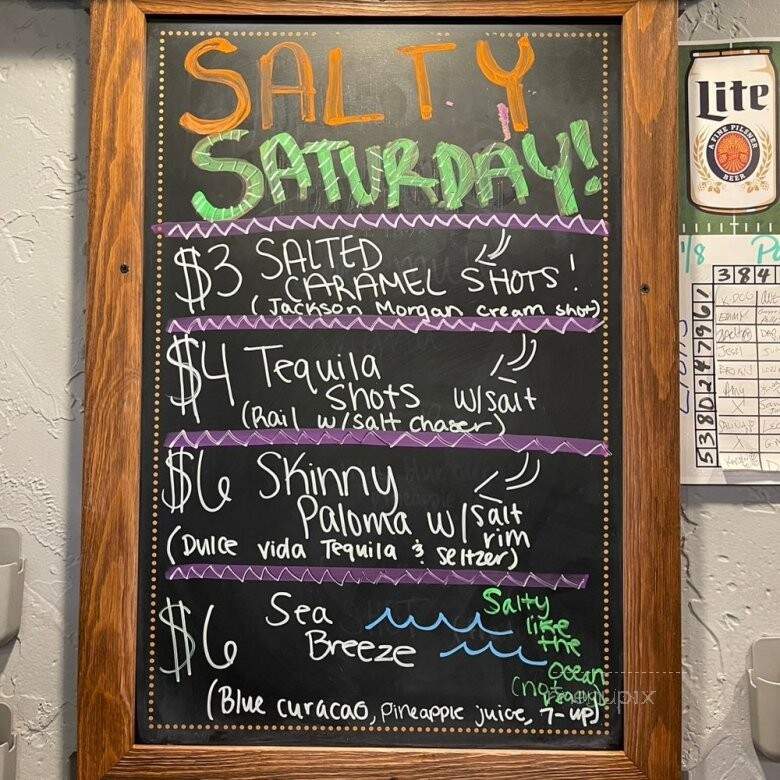 SALTY
SATURDAY!
$3 SALTED
CARAMEL SHOTS!
(Jackson Morgan cream shot)
$4 Tequila
Shots w/salt
(Rail w/salt chaser)
$6 Skinny
Paloma w/salt
rim
(Dulce vida Tequila & seltzer)
$6 Sea
Breeze
Salty
like
the
ocean
(Blue curacao, Pineapple juice, 7-up)
menupix
Lite
A FINE PILSNER
BEER
1/8
3 8 4
5 3 8 0 2 4 7 9 6 1